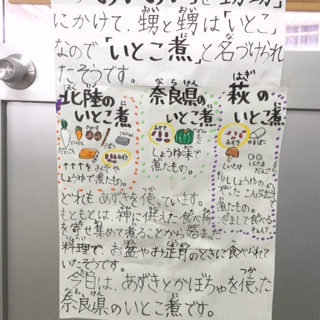 にかけて、甥と甥は「いとこ」
なので「いとこ煮」と名づけられ
たそうです。
北陸の
いとこ煮
奈良県の
いとこ煮
萩の
いとこ煮
しょうゆで煮たもの。
しょうゆ味で
煮たもの。
あずき
しいたけ
冷まして食べる
どれもあずきを使っています。
もともとは、神に供えた食べ物
を寄せ集めて煮ることから始まった
料理で、お盆やお正月のときに食べられて
いたそうです。
今日は、あずきとかぼちゃを使った
奈良県のいとこ煮です。